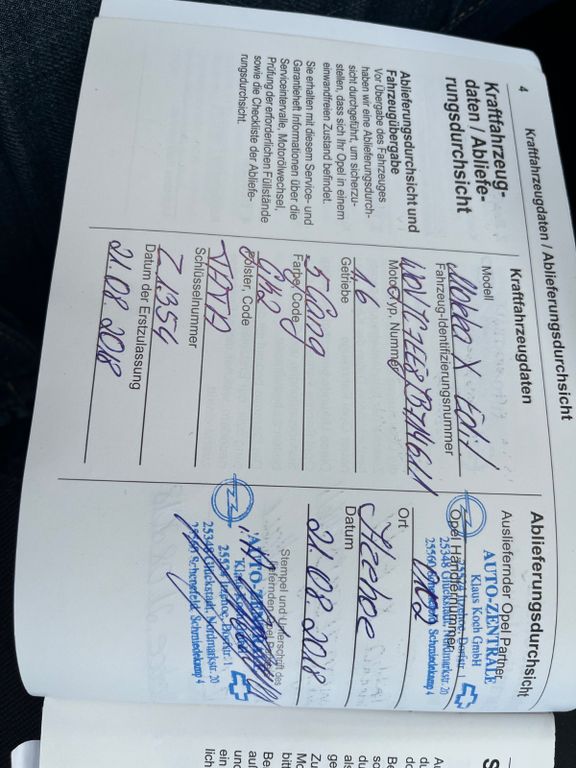 Kraftfahrzeugdaten / Ablieferungsdurchsicht
4
Kraftfahrzeug-
daten / Abliefe-
rungsdurchsicht
Ablieferungsdurchsicht und
Fahrzeugübergabe
Vor Übergabe des Fahrzeuges
haben wir eine Ablieferungsdurch-
sicht durchgeführt, um sicherzu-
stellen, dass sich Ihr Opel in einem
einwandfreien Zustand befindet.
Sie erhalten mit diesem Service- und
Garantieheft Informationen über die
Serviceintervalle, Motorölwechsel,
Prüfung der erforderlichen Füllstände
sowie die Checkliste der Abliefe-
rungsdurchsicht.
Kraftfahrzeugdaten
Mokka X
Modell
Fahrzeug-Identifizierungsnummer
1.6
Motor, Typ, Nummer
5 Gang
Getriebe
Farbe, Code
Polster, Code
Schlüsselnummer
21.08.2018
Datum der Erstzulassung
Ablieferungsdurchsicht
Ausliefernder Opel Partner
AUTO-ZENTRALE
Klaus Koch GmbH
25348 Glückstadt, Nordmarkstr. 20
25560 Schenefeld, Schmiedekamp 4
Opel Händlernummer
Itzehoe
Ort
21.08.2018
Datum
Stempel und Unterschrift des
AUTO-ZENTRALE
Klaus Koch GmbH
25348 Glückstadt, Nordmarkstr. 20
25560 Schenefeld, Schmiedekamp 4